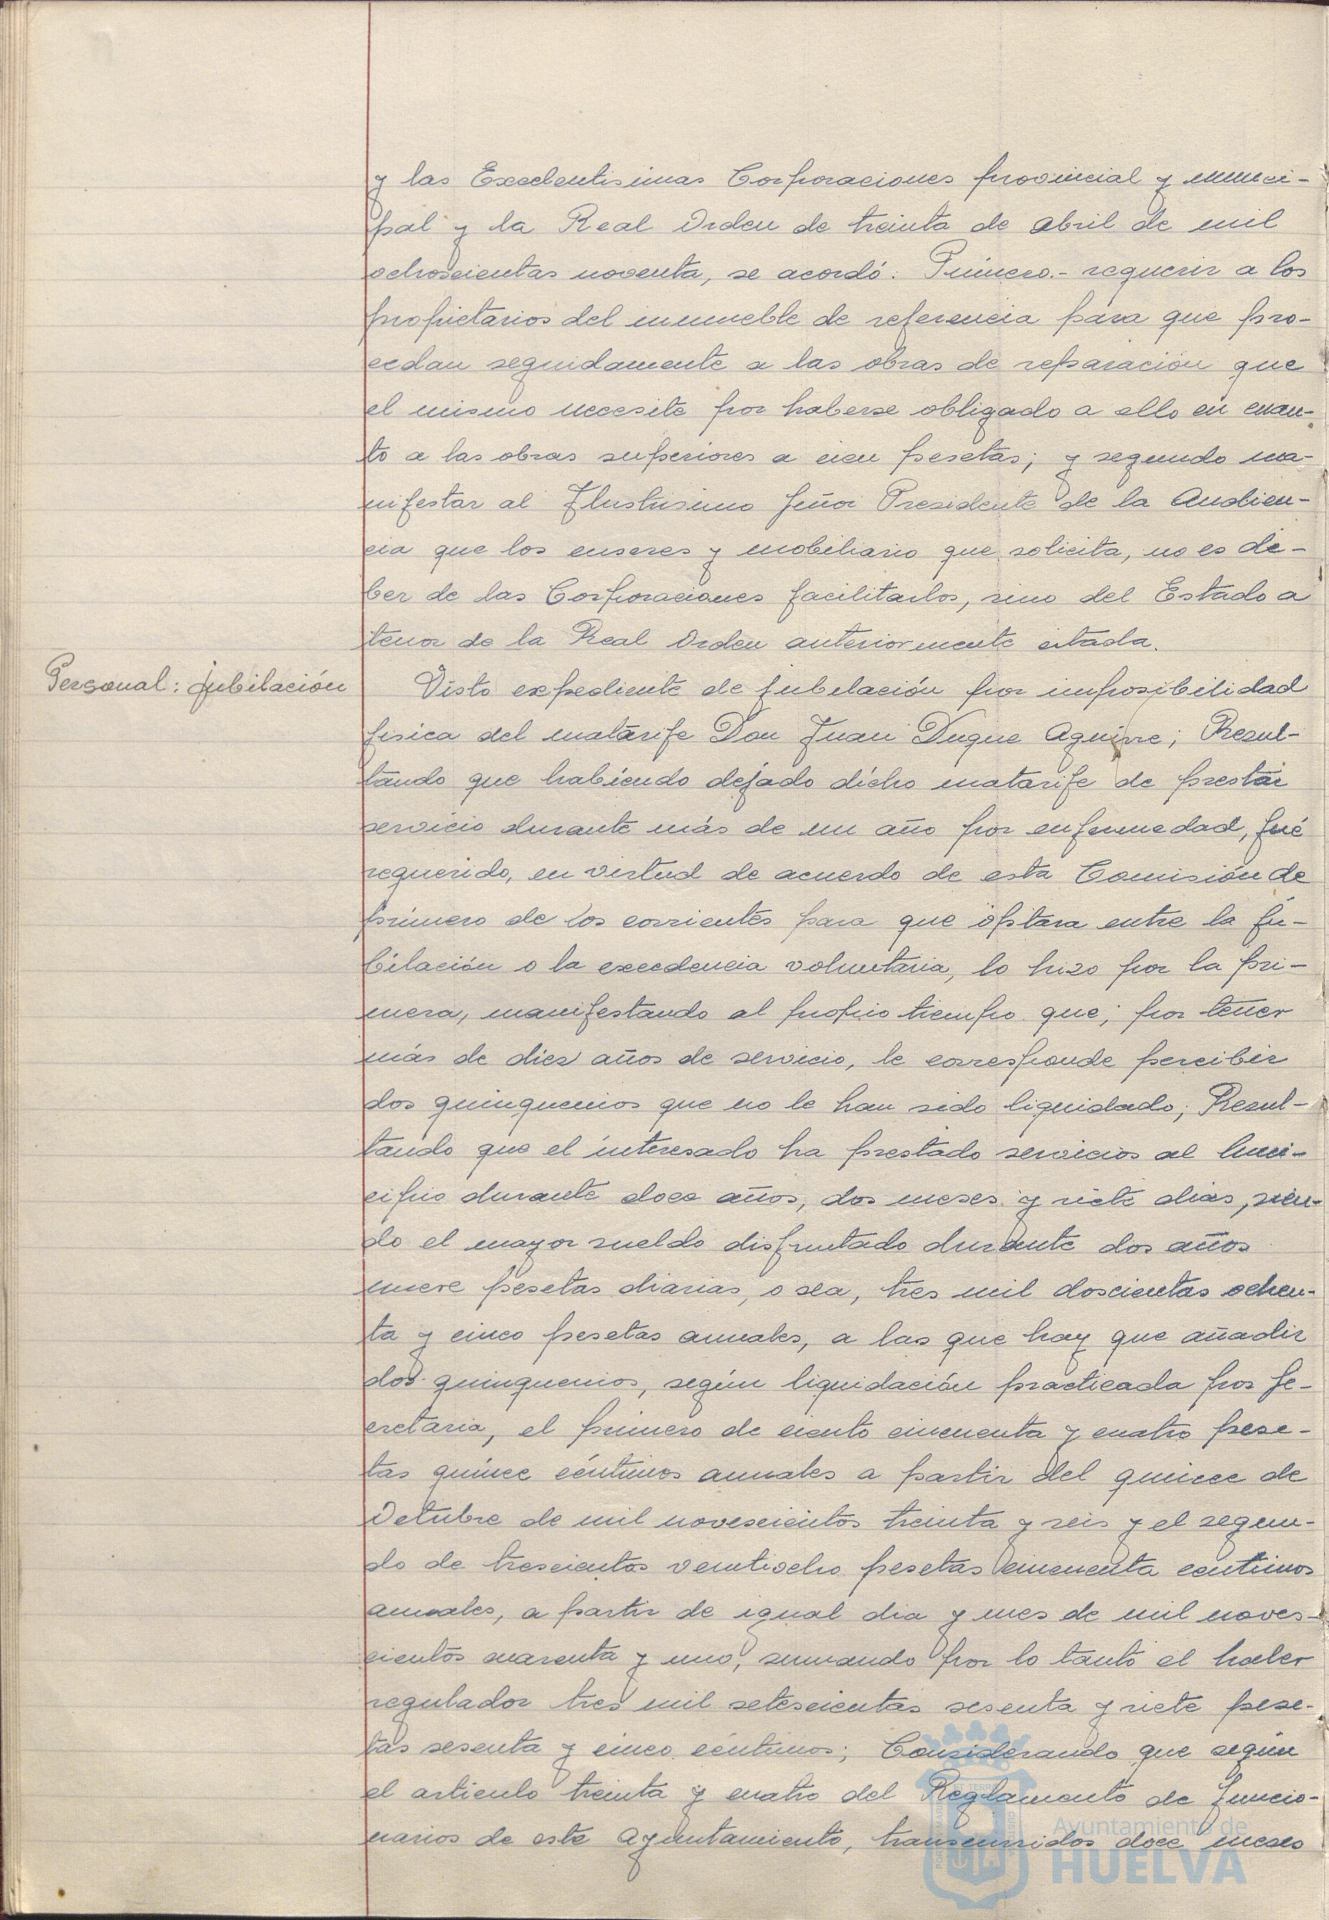 y las Excelentisimas Corporaciones provincial y munici-
pal y la Real Orden de treinta de abril de mil
ochoscientas noventa, se acordó: Primero.- requerir a los
propietarios del inmueble de referencia para que pro-
cedan seguidamente a las obras de reparación que
el mismo necesite por haberse obligado a ello en cuan-
to a las obras superiores a cien pesetas; y segundo ma-
nifestar al Ilustrisimo Señor Presidente de la Audien-
cia que los enseres y mobiliario que solicita, no es de-
ber de las Corporaciones facilitarlos, sino del Estado a
tenor de la Real Orden anteriormente citada.
Personal: jubilación
Visto expediente de jubilación por imposibilidad
fisica del matarife Don Juan Duque Aguirre; Resul-
tando que habiendo dejado dicho matarife de prestar
servicio durante más de un año por enfermedad, fué
requerido, en virtud de acuerdo de esta Comisión de
primero de los corrientes para que optara entre la ju-
bilación o la excedencia voluntaria, lo hizo por la pri-
mera, manifestando al propio tiempo que; por tener
más de diez años de servicio, le corresponde percibir
dos quinquenios que no le han sido liquidado; Resul-
tando que el interesado ha prestado servicios al Muni-
cipio durante doce años, dos meses y siete dias, sien-
do el mayor sueldo disfrutado durante dos años
nueve pesetas diarias, o sea, tres mil doscientas ochen-
ta y cinco pesetas anuales, a las que hay que añadir
dos quinquenios, según liquidación practicada por Se-
cretaria, el primero de ciento cincuenta y cuatro pese-
tas quince céntimos anuales a partir del quince de
Octubre de mil novescientos treinta y seis y el segun-
do de trescientos veintiocho pesetas cincuenta centimos
anuales, a partir de igual dia y mes de mil noves-
cientos cuarenta y uno, sumando por lo tanto el haber
regulador tres mil setescientas sesenta y siete pese-
tas sesenta y cinco céntimos; Considerando que según
el articulo treinta y cuatro del Reglamento de funcio-
narios de este Ayuntamiento, transcurridos doce meses
Ayuntamiento de
HUELVA